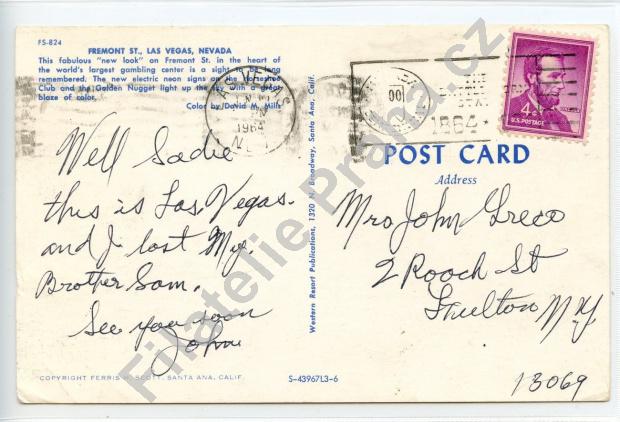 FS-824
FREMONT ST., LAS VEGAS, NEVADA
This fabulous "new look" on Fremont St. in the heart of
the world's largest gambling center is a sight to be long
remembered. The new electric neon signs on the Horseshoe
Club and the Golden Nugget light up the sky with a great
blaze of color.
Color by David M. Mills
Well Sadie
this is Las Vegas.
and I lost My.
Brother Sam.
See you soon
John
COPYRIGHT FERRIS H. SCOTT, SANTA ANA, CALIF.
Western Resort Publications, 1320 N. Broadway, Santa Ana, Calif.
S-43967L3-6
LAS VEGAS
1964
1964
4¢
U.S. POSTAGE
POST CARD
Address
Mrs John Greco
2 Rooch St
Fulton N.Y.
13069
Filatelie Praha.cz